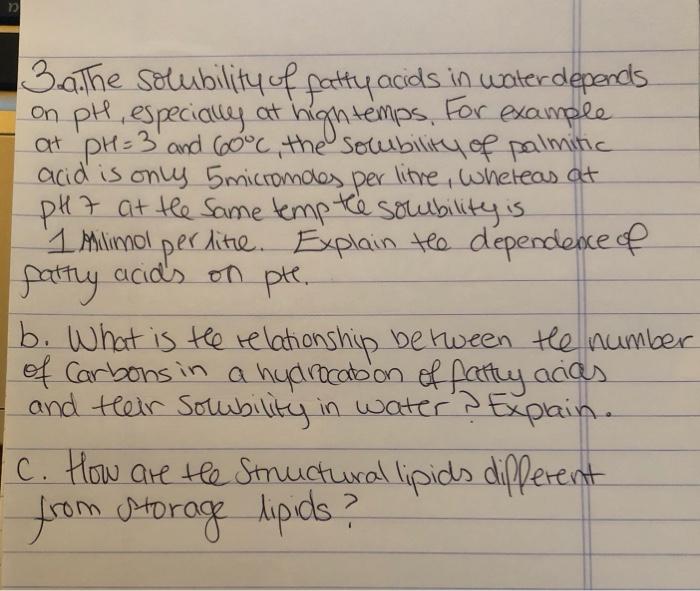 3.a.The solubility of fatty acids in water depends
on pH, especially at high temps. For example
at pH=3 and 60°C, the solubility of palmitic
acid is only 5micromoles per litre, whereas at
pH 7 at the same temp the solubility is
1 Milimol per litre. Explain the dependence of
fatty acids on pH.
b. What is the relationship between the number
of Carbons in a hydrocabon of fatty acids
and their Solubility in water? Explain.
C. How are the Structural lipids different
from storage lipids?